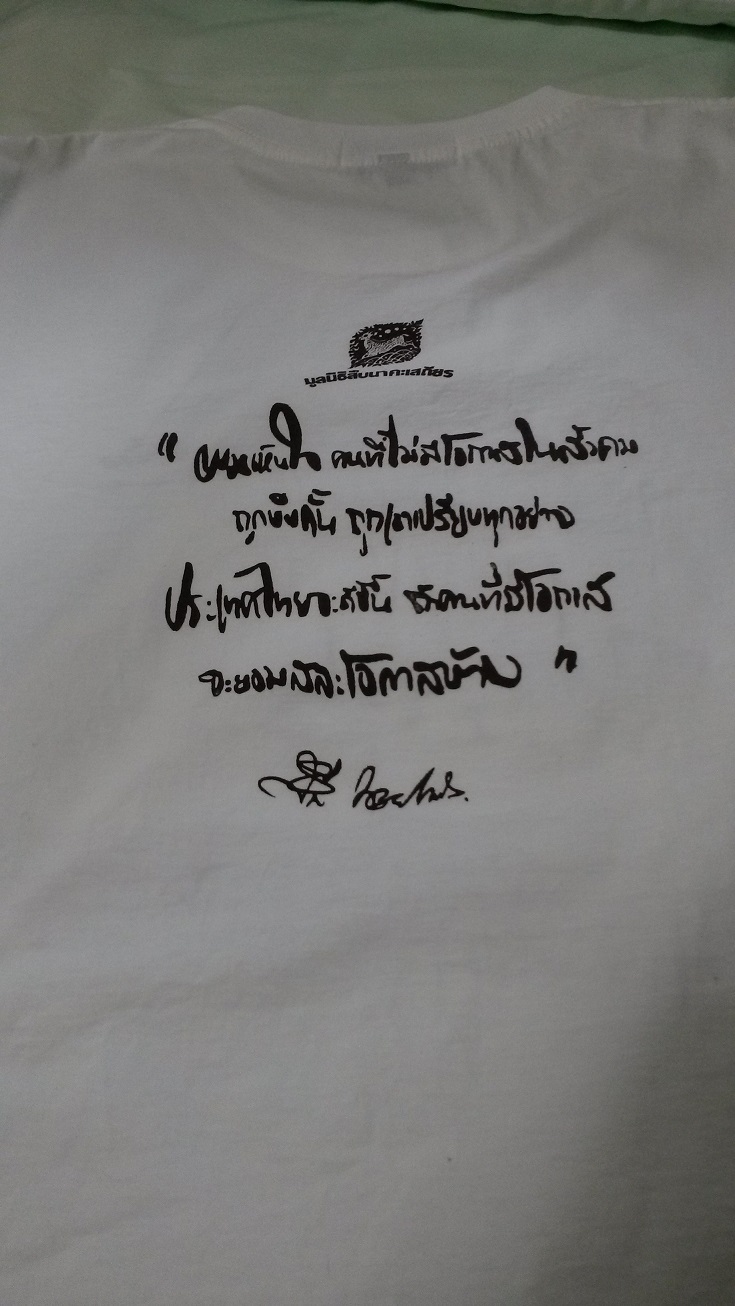 มูลนิธิสืบนาคะเสถียร
" ผมเห็นใจ คนที่ไม่มีโอกาสในสังคม
ถูกบีบคั้น ถูกเอาเปรียบทุกอย่าง
ประเทศไทยจะดีขึ้น ถ้าคนที่มีโอกาส
จะยอมสละโอกาสบ้าง "